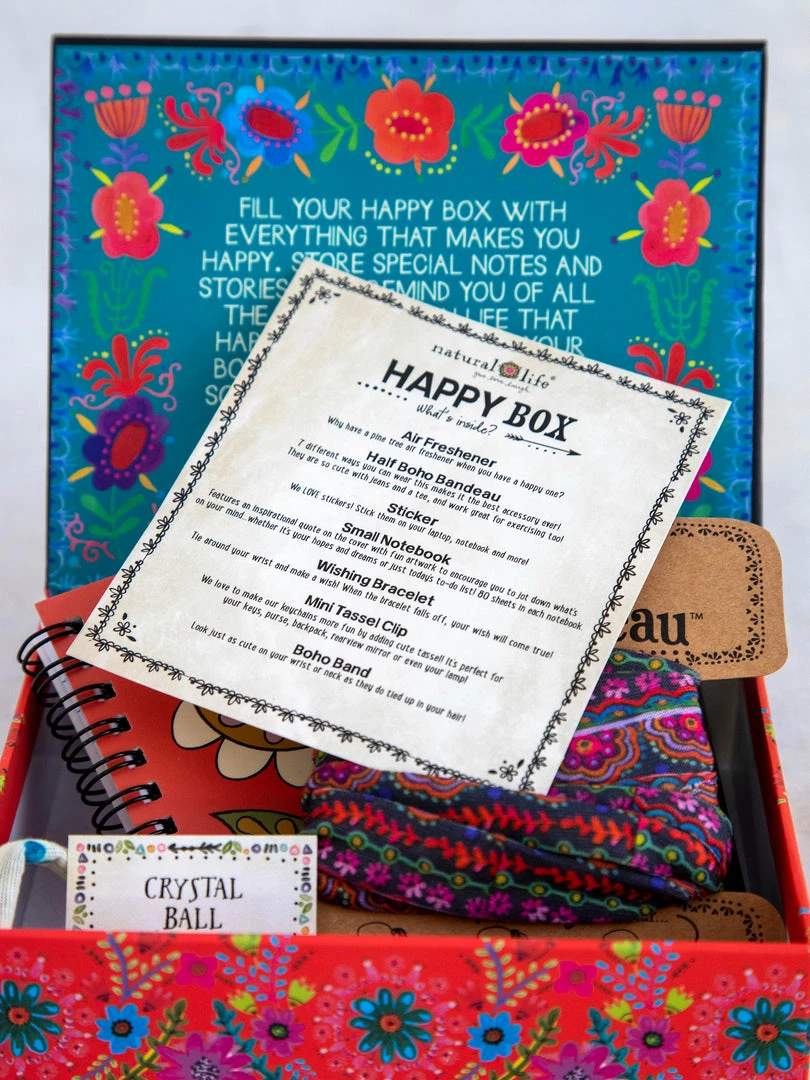 FILL YOUR HAPPY BOX WITH
EVERYTHING THAT MAKES YOU
HAPPY. STORE SPECIAL NOTES AND
STORIES REMIND YOU OF ALL
THE LIFE THAT
YOUR
natural life®
give love laugh
HAPPY BOX
What's inside?
Air Freshener
Why have a pine tree air freshener when you have a happy one?
Half Boho Bandeau
7 different ways you can wear this makes it the best accessory ever!
They are so cute with jeans and a tee, and work great for exercising too!
Sticker
We LOVE stickers! Stick them on your laptop, notebook and more!
Small Notebook
Features an inspirational quote on the cover with fun artwork to encourage you to jot down what's
on your mind...whether it's your hopes and dreams or just today's to-do list! 80 Sheets in each notebook
Wishing Bracelet
Tie around your wrist and make a wish! When the bracelet falls off, your wish will come true!
Mini Tassel Clip
We love to make our keychains more fun by adding cute tassel! It's perfect for
your keys, purse, backpack, rearview mirror or even your lamp!
Boho Band
Look just as cute on your wrist or neck as they do tied up in your hair!
eau™
CRYSTAL
BALL